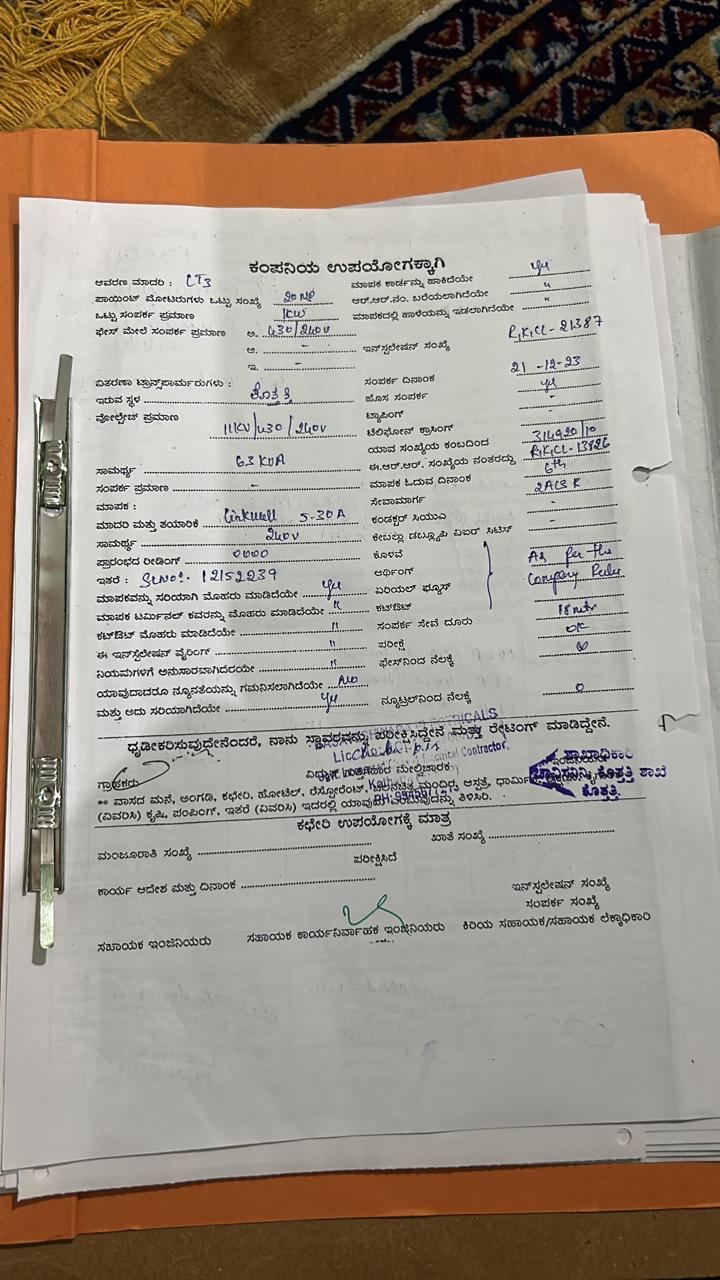 ಕಂಪನಿಯ ಉಪಯೋಗಕ್ಕಾಗಿ
ಆವರಣ ಮಾದರಿ : LT3 ಮಾಪಕ ಕಾರ್ಡನ್ನು ಹಾಕಿದೆಯೇ
ಪಾಯಿಂಟ್ ಮೋಟರುಗಳು ಒಟ್ಟು ಸಂಖ್ಯೆ ಆರ್.ಆರ್.ನಂ. ಬರೆಯಲಾಗಿದೆಯೇ "
ಒಟ್ಟು ಸಂಪರ್ಕ ಪ್ರಮಾಣ 1KW ಮಾಪಕದಲ್ಲಿ ಹಾಳೆಯನ್ನು ಇಡಲಾಗಿದೆಯೇ "
ಫೇಸ್ ಮೇಲೆ ಸಂಪರ್ಕ ಪ್ರಮಾಣ ಅ. 430/240V
ಆ. - ಇನ್‌ಸ್ಟಲೇಷನ್ ಸಂಖ್ಯೆ 21387
ಇ. -
ವಿತರಣಾ ಟ್ರಾನ್ಸ್‌ಪಾರ್ಮರುಗಳು : ಸಂಪರ್ಕ ದಿನಾಂಕ 21-12-23
ಇರುವ ಸ್ಥಳ ಕೊತ್ತತ್ತಿ ಹೊಸ ಸಂಪರ್ಕ
ವೋಲ್ಟೇಜ್ ಪ್ರಮಾಣ ಟ್ಯಾಪಿಂಗ್ -
11KV/430/240V ಟೆಲಿಫೋನ್ ಕ್ರಾಸಿಂಗ್ -
ಯಾವ ಸಂಖ್ಯೆಯ ಕಂಬದಿಂದ
ಸಾಮರ್ಥ್ಯ 63 KVA ಈ.ಆರ್.ಆರ್. ಸಂಖ್ಯೆಯ ನಂತರದ್ದು
ಸಂಪರ್ಕ ಪ್ರಮಾಣ - ಮಾಪಕ ಓದುವ ದಿನಾಂಕ 6th
ಮಾಪಕ : ಸೇವಾಮಾರ್ಗ
ಮಾದರಿ ಮತ್ತು ತಯಾರಿಕೆ Linkwell 5-30A ಕಂಡಕ್ಟರ್ ಸಿಯುಎ -
ಸಾಮರ್ಥ್ಯ 240V ಕೇಬಲ್ಲು ಡಬ್ಲ್ಯೂಪಿ ಏಐರ್ ಸಿಟಿಸ್ -
ಪ್ರಾರಂಭದ ರೀಡಿಂಗ್ 0000 ಕೊಳವೆ
ಇತರೆ : Sl.No: 12152239 ಅರ್ಥಿಂಗ್ As per the
ಮಾಪಕವನ್ನು ಸರಿಯಾಗಿ ಮೊಹರು ಮಾಡಿದೆಯೇ ಏರಿಯಲ್ ಫ್ಯೂಸ್ Company Rules
ಮಾಪಕ ಟರ್ಮಿನಲ್ ಕವರನ್ನು ಮೊಹರು ಮಾಡಿದೆಯೇ " ಕಟ್‌ಔಟ್
ಕಟ್‌ಔಟ್ ಮೊಹರು ಮಾಡಿದೆಯೇ " ಸಂಪರ್ಕ ಸೇವೆ ದೂರು 18 mtr
ಈ ಇನ್‌ಸ್ಟಲೇಷನ್ ವೈರಿಂಗ್ " ಪರೀಕ್ಷೆ OK
ನಿಯಮಗಳಿಗೆ ಅನುಸಾರವಾಗಿದೆರಯೇ " ಫೇಸ್‌ನಿಂದ ನೆಲಕ್ಕೆ
ಯಾವುದಾದರೂ ನ್ಯೂನತೆಯನ್ನು ಗಮನಿಸಲಾಗಿದೆಯೇ No
ಮತ್ತು ಅದು ಸರಿಯಾಗಿದೆಯೇ ನ್ಯೂಟ್ರಲ್‌ನಿಂದ ನೆಲಕ್ಕೆ 0
ಧೃಡೀಕರಿಸುವುದೇನೆಂದರೆ, ನಾನು ಸ್ಥಾವರವನ್ನು ಪರೀಕ್ಷಿಸಿದ್ದೇನೆ ಮತ್ತು ರೇಟಿಂಗ್ ಮಾಡಿದ್ದೇನೆ.
Electrical Contractor.
ಶಾಖಾಧಿಕಾರಿ
ಗ್ರಾಹಕರು ವಿದ್ಯುತ್ ಮೇಲ್ವಿಚಾರಕ ಕೊತ್ತತ್ತಿ ಶಾಖೆ
ಕೊತ್ತತ್ತಿ.
** ವಾಸದ ಮನೆ, ಅಂಗಡಿ, ಕಛೇರಿ, ಹೋಟೆಲ್, ರೆಸ್ಟೋರೆಂಟ್, ಚಲನಚಿತ್ರ ಮಂದಿರ, ಆಸ್ಪತ್ರೆ,
(ವಿವರಿಸಿ) ಕೃಷಿ, ಪಂಪಿಂಗ್, ಇತರೆ (ವಿವರಿಸಿ) ಇದರಲ್ಲಿ ತಿಳಿಸಿರಿ.
ಕಛೇರಿ ಉಪಯೋಗಕ್ಕೆ ಮಾತ್ರ
ಮಂಜೂರಾತಿ ಸಂಖ್ಯೆ ಖಾತೆ ಸಂಖ್ಯೆ
ಪರೀಕ್ಷಿಸಿದೆ
ಕಾರ್ಯ ಆದೇಶ ಮತ್ತು ದಿನಾಂಕ ಇನ್‌ಸ್ಟಲೇಷನ್ ಸಂಖ್ಯೆ
ಸಂಪರ್ಕ ಸಂಖ್ಯೆ
ಸಹಾಯಕ ಇಂಜಿನಿಯರು ಸಹಾಯಕ ಕಾರ್ಯನಿರ್ವಾಹಕ ಇಂಜಿನಿಯರು ಕಿರಿಯ ಸಹಾಯಕ/ಸಹಾಯಕ ಲೆಕ್ಕಾಧಿಕಾರಿ